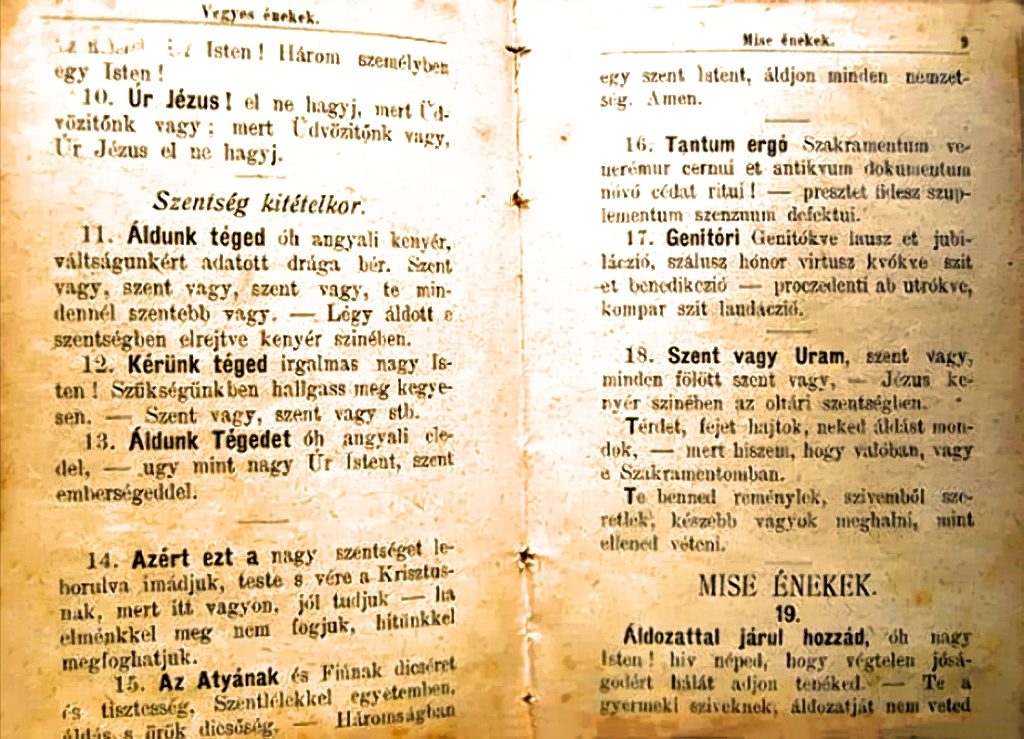 Vegyes énekek.
Isten! Három személyben
egy Isten!
10. Úr Jézus! el ne hagyj, mert Üd-
vözitőnk vagy; mert Üdvözitőnk vagy,
Úr Jézus el ne hagyj.
Szentség kitételkor.
11. Áldunk téged óh angyali kenyér,
váltságunkért adatott drága bér. Szent
vagy, szent vagy, szent vagy, te min-
dennél szentebb vagy. — Légy áldott e
szentségben elrejtve kenyér szinében.
12. Kérünk téged irgalmas nagy Is-
ten! Szükségünkben hallgass meg kegye-
sen. — Szent vagy, szent vagy stb.
13. Áldunk Tégedet óh angyali ele-
del, — ugy mint nagy Úr Istent, szent
emberségeddel.
14. Azért ezt a nagy szentséget le-
borulva imádjuk, teste s vére a Krisztus-
nak, mert itt vagyon, jól tudjuk — ha
elménkkel meg nem fogjuk, hitünkkel
megfoghatjuk.
15. Az Atyának és Fiúnak dicséret
és tisztesség, Szentlélekkel egyetemben,
áldás s örök dicsőség. — Háromságban
Mise énekek. 9
egy szent Istent, áldjon minden nemzet-
ség. Amen.
16. Tantum ergó Szakramentum ve-
nerémur cernui et antikvum dokumentum
nóvó cédat ritui! — presztet fidesz szup-
lementum szenzuum defektui.
17. Genitóri Genitókve lausz et jubi-
láczió, szálusz hónor virtusz kvókve szit
et benedikczió — proczedenti ab utrókve,
kompár szit laudáczió.
18. Szent vagy Uram, szent vagy,
minden fölött szent vagy, — Jézus ke-
nyér szinében az oltári szentségben.
Térdet, fejet hajtok, neked áldást mon-
dok, — mert hiszem, hogy valóban, vagy
e Szakramentomban.
Te benned reménylek, szivemből sze-
retlek, készebb vagyok meghalni, mint
ellened véteni.
MISE ÉNEKEK.
19.
Áldozattal járul hozzád, óh nagy
Isten! hiv néped, hogy végtelen jósá-
godért hálát adjon tenéked. — Te a
gyermeki sziveknek, áldozatját nem veted